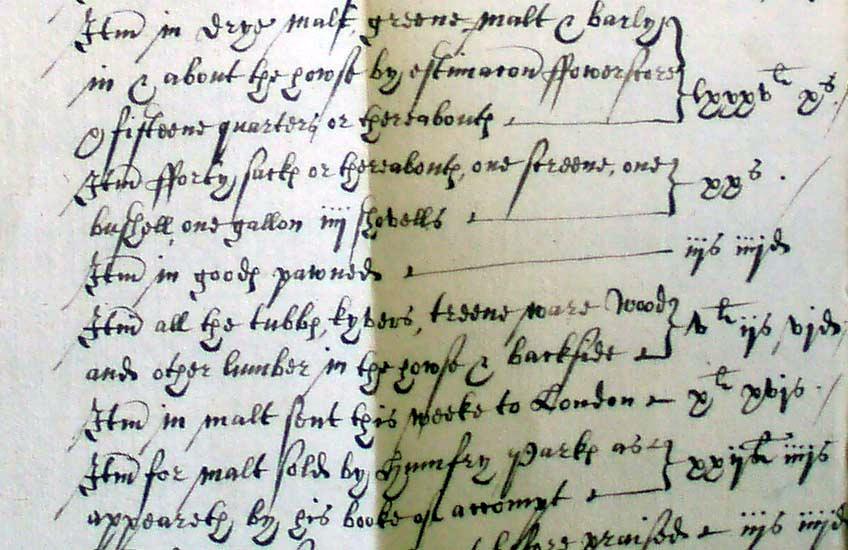 Itm in drye malt, greene malt & barly
in & about the howse by estimacon ffowerscore
& fifteene quarters or thereaboutes lxxxvli xs.
Itm fforty sackes or thereaboutes, one screene, one
bushell, one gallon iiij shovells xxs.
Itm in goodes pawned iijs iiijd
Itm all the tubbes, kyvers, treene ware wood
and other lumber in the howse & backside vli iijs vjd
Itm in malt sent this weeke to London xli xvjs.
Itm for malt sold by Humfry Parkes as
appeareth by his booke of accompt xxijli iiijs
before praised iijs iiijd